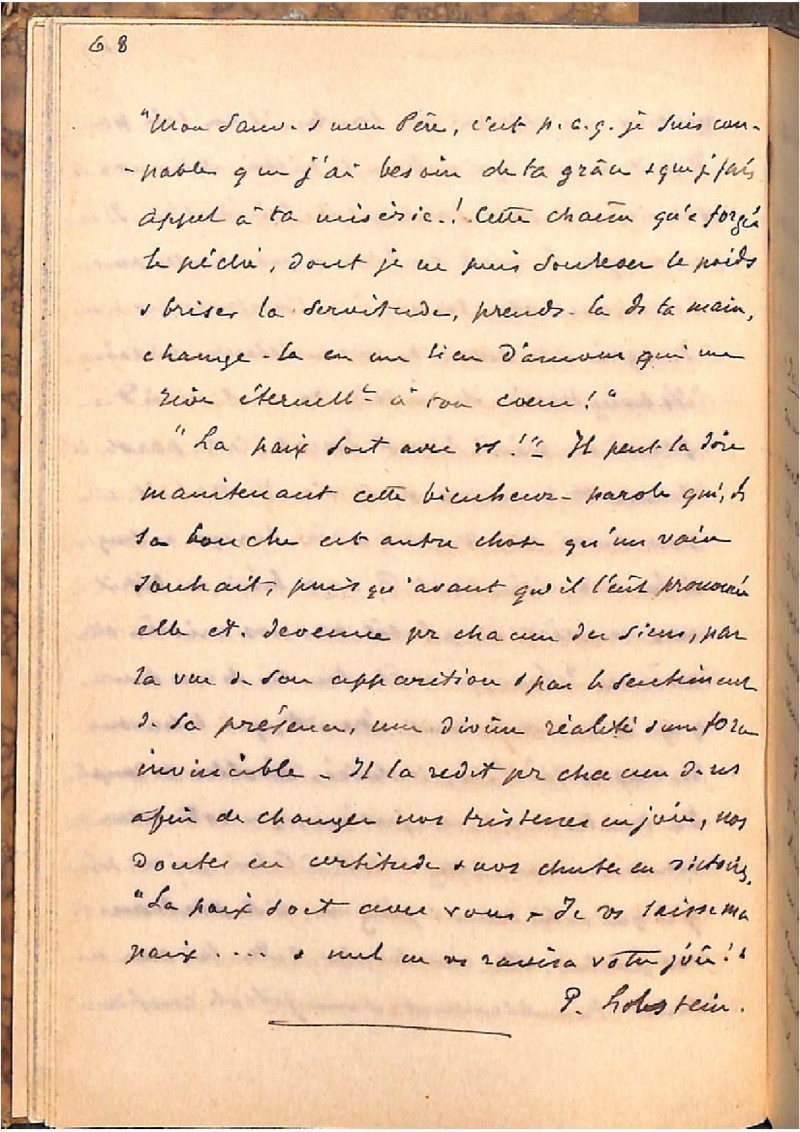 68
"Mon Sauv. & mon Père, c'est p.c.q. je suis cou-
-pable que j'ai besoin de ta grâce & que je fais
appel à ta miséric.! Cette chaîne qu'a forgée
le péché, dont je ne puis soulever le poids
& briser la servitude, prends-la ds ta main,
change-la en un lien d'amour qui me
rive éternellt à ton cœur!"
"La paix soit avec vs!" - Il peut la dire
maintenant cette bienheur- parole qui, ds
sa bouche est autre chose qu'un vain
souhait, puisqu'avant qu'il l'eût prononcée
elle et. devenue pr chacun des siens, par
la vue de son apparition & par le sentiment
de sa présence, une divine réalité & une force
invincible - Il la redit pr chacun de ns
afin de changer nos tristesses en joie, nos
doutes en certitude & nos chutes en victoires.
"La paix soit avec vous - Je vs laisse ma
paix .... & nul ne vs ravira votre joie!"
P. Lobstein.